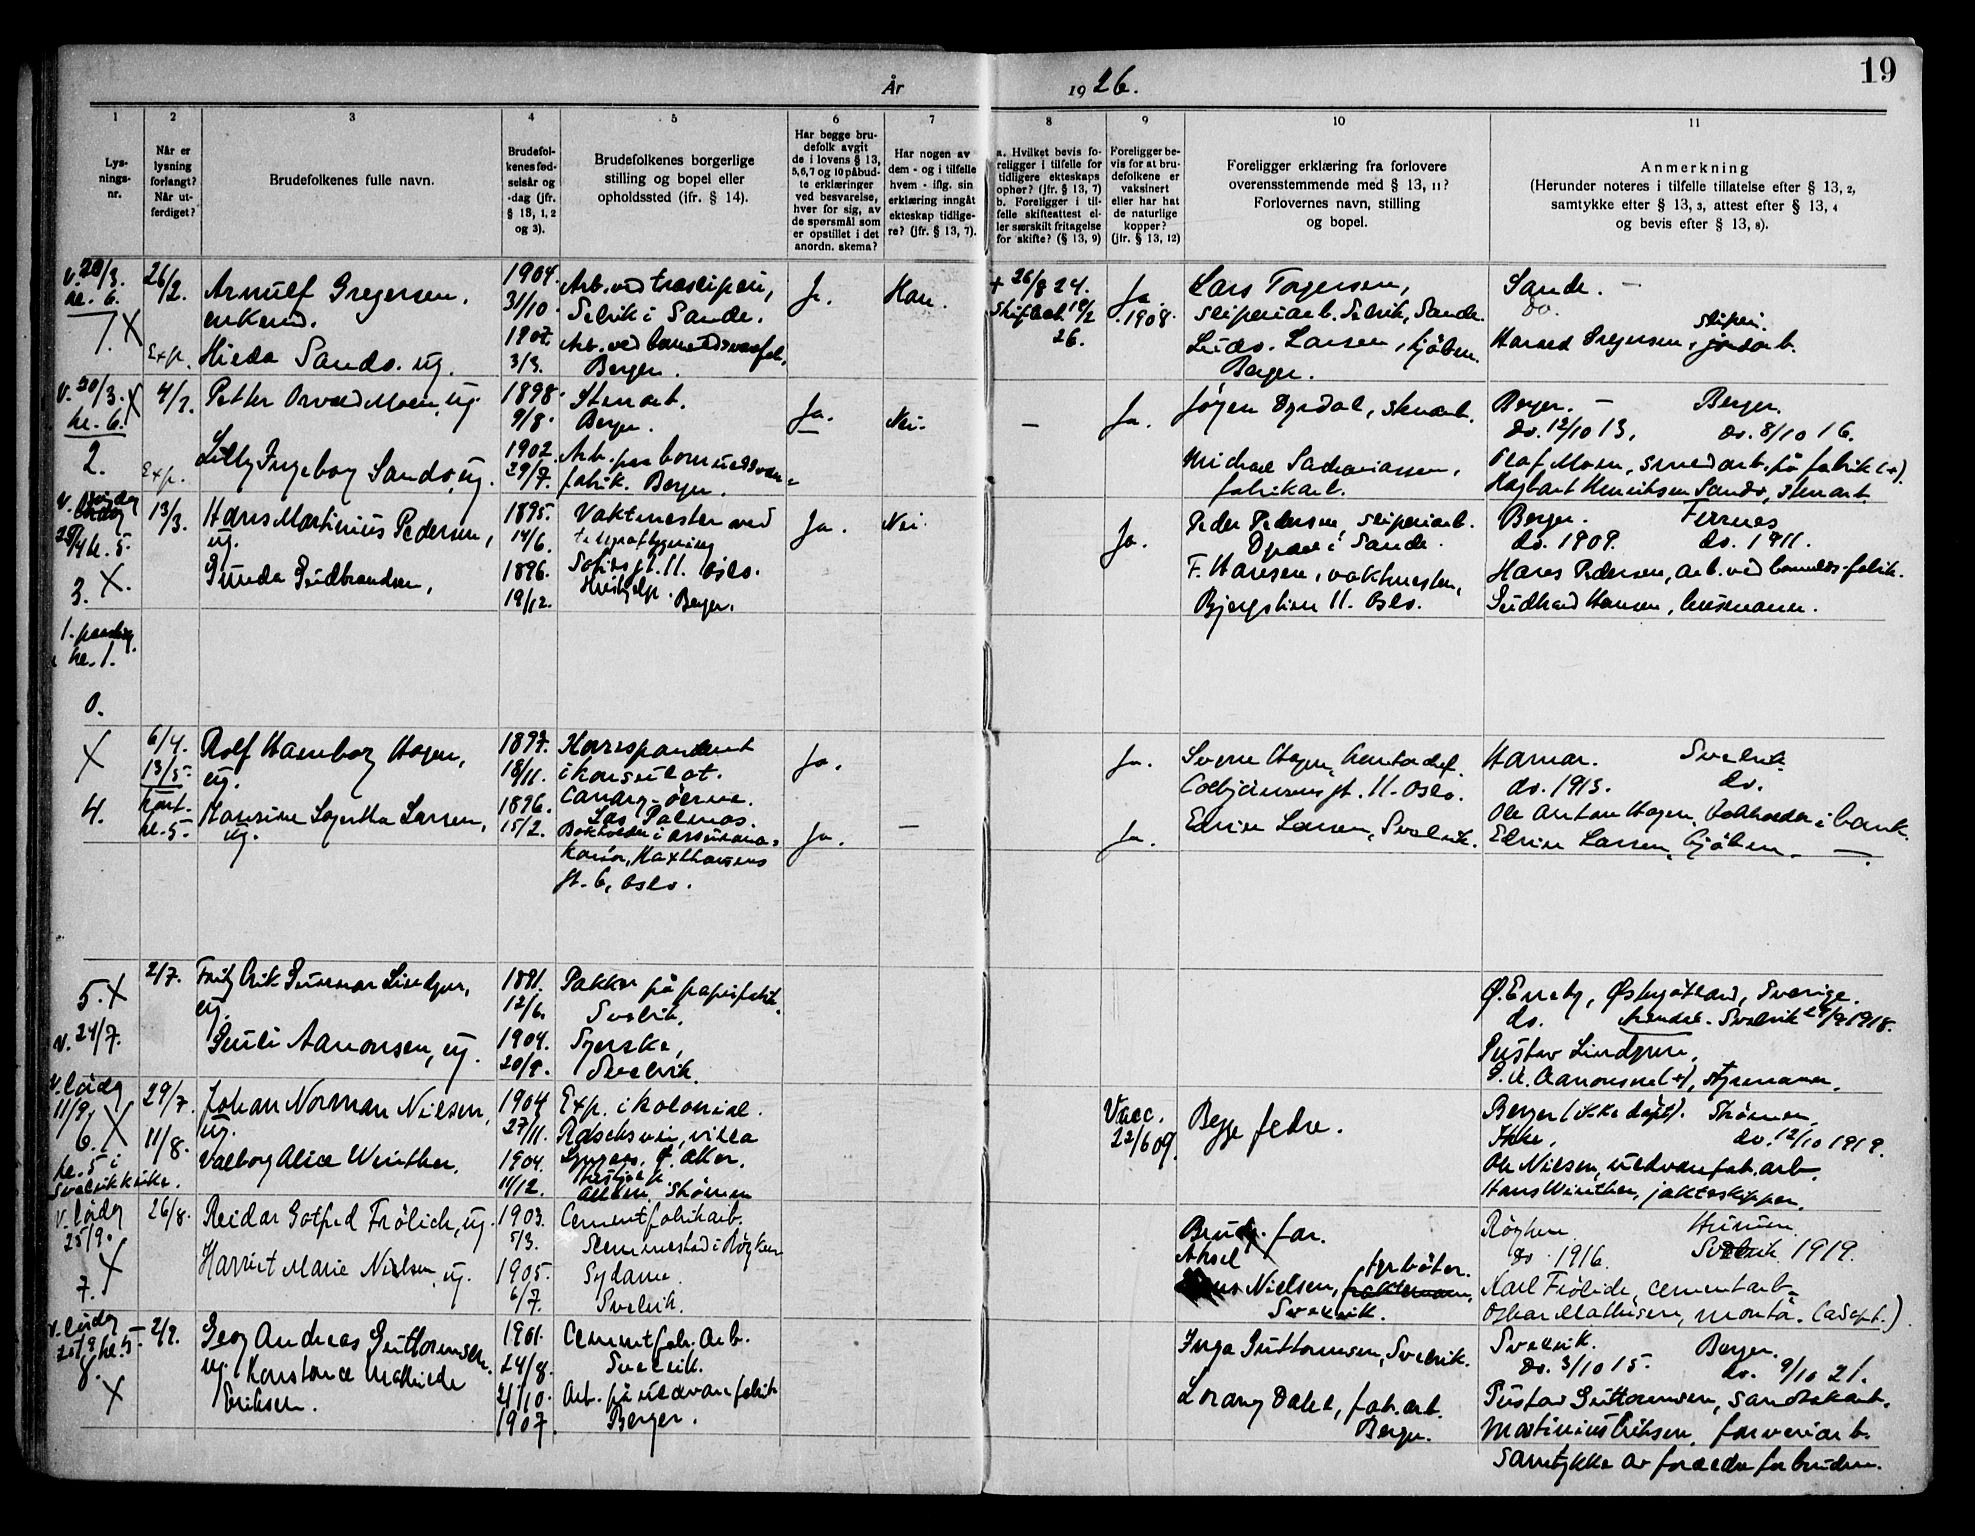 19
År 1926.
1 2 3 4 5 6 7 8 9 10 11
Lys-
nings-
nr.
Når er
lysning
forlangt?
Når ut-
ferdiget?
Brudefolkenes fulle navn.
Brudefol-
kenes fød-
selsår og
-dag (jfr.
§ 13, 1, 2
og 3).
Brudefolkenes borgerlige
stilling og bopel eller
opholdssted (jfr. § 14).
Har begge bru-
defolk avgit
de i lovens § 13,
5,6,7 og 10 påbud-
te erklæringer
ved besvarelse,
hver for sig, av
de spørsmål som
er opstillet i det
anordn. skema?
Har nogen av
dem - og i tilfelle
hvem - iflg. sin
erklæring inngåt
ekteskap tidlige-
re? (jfr. § 13, 7).
a. Hvilket bevis fo-
religger i tilfelle for
tidligere ekteskaps
ophør? (jfr. § 13, 7)
b. Foreligger i til-
felle skifteattest el-
ler særskilt fritagelse
for skifte? (§ 13, 9)
Foreligger be-
vis for at bru-
defolkene er
vaksinert
eller har hat
de naturlige
kopper?
(jfr. § 13, 12)
Foreligger erklæring fra forlovere
overensstemmende med § 13, 11?
Forlovernes navn, stilling
og bopel.
Anmerkning
(Herunder noteres i tilfelle tillatelse efter § 13, 2,
samtykke efter § 13, 3, attest efter § 13, 4
og bevis efter § 13, 8).
V. 20/3.
kl. 6.
1. X
26/2.
Exp.
Arnulf Gregersen,
enkem.
Hilda Sando. ug.
1904.
31/10.
1907.
3/3.
Arb. ved træsliperi,
Selvik i Sande.
Arb. ved
Berger.
Ja.
Han.
+ 26/8 24.
Skifteat. 18/2
26.
Ja
1908.
Lars Torgersen,
sliperiarb. Selvik, Sande.
Ludv. Larsen,
Berger.
Sande. —
do.
sliperi.
Harald Gregersen, jordarb.
V. 20/3. X
kl. 6.
2.
4/3.
Exp.
Petter Orvald Moen, ug.
Lilly Ingeborg Sando, ug.
1898.
9/8.
1902.
29/7.
Stenarb.
Berger.
Arb. paa
fabrik. Berger.
Ja.
Nei.
—
Ja.
Jørgen Dyrdal, stenarb.
Michael Sachariassen,
fabrikarb.
Berger. — Berger.
do. 12/10 13. do. 8/10 16.
Olaf Moen, smedarb. på fabrik (+).
Hagbart Henriksen Sando, stenarb.
kl. 5.
3. X.
13/3.
Hans Martinius Pedersen,
ug.
Gunda Gudbrandsen,
1895.
14/6.
1896.
19/12.
Vaktmester ved
Sofies gt. 11. Oslo.
Hushjelp. Berger.
Ja.
Nei.
Ja.
Peder Pedersen, sliperiarb.
i Sande.
F. Hansen, vaktmester,
11. Oslo.
Berger.
do. 1909. do. 1911.
Hans Pedersen, arb. ved
Gudbrand Hansen, husmann.
kl. 1.
0.
X
4.
6/4.
13/5.
kl. 5.
Rolf Hamborg Hagen,
ug.
Hansine Larsen,
ug.
1897.
18/11.
1896.
15/2.
Korrespondent
i konsulat.
Canary-öerne.
Las Palmas.
Bokholder i
kontor,
gt. 6, Oslo.
Ja.
Ja.
—
Ja.
Ja.
Sverre Hagen, kontorchef.
gt. 11. Oslo.
Edvin Larsen, Svelvik.
Hamar. Svelvik.
do. 1913. do.
Ole Anton Hagen, bokholder i bank.
Edvin Larsen,
5. X
V. 24/7.
2/7.
Fritz Erik Gunnar Lindgren,
ug.
Aanonsen, ug.
1891.
12/6.
1904.
20/8.
Pakker på papirfabrik.
Svelvik.
Syerske,
Svelvik.
Ø. Eneby, Østergötland, Sverige.
do. Svelvik 1918.
Gustav Lindgren,
Aanonsen (+), styrmann.
V. lördag
11/9. X
6.
kl. 5 i
Svelvik kirke.
29/7.
11/8.
Johan Norman Nielsen,
ug.
Valborg Alice Winther.
1904
27/11.
1904.
14/12.
Exp. i kolonial.
villa
Aker.
Strømm
Vacc.
22/6 09.
Begge fedre.
Berger (ikke døpt). Strømm,
Ikke. do. 12/10 1919.
Ole Nielsen, uldvarefab. arb.
Hans Winther, jakteskipper.
V. lördag
25/9.
X
7.
26/8.
Reidar Gotfred Frölich, ug.
Harriet Marie Nielsen, ug.
1903.
5/3.
1905.
6/7.
Cementfabrikarb.
Slemmestad i Röyken
Sydame.
Svelvik.
far.
Aksel
Nielsen, fyrböter.
Svelvik.
Röyken Hurum
do. 1916. Svelvik 1919.
Karl Frölich, cementarb.
Oskar Mathisen, montör. (adopt.)
V. lördag
25/9 kl. 5
8.
X
2/9.
Georg Andreas Guttormsen
ug. Konstance Mathilde
Eriksen.
1901.
24/8.
21/10.
1907.
Cementfab. arb.
Svelvik.
Arb. på uldvarefabrik
Berger.
Inga Guttormsen, Svelvik.
Lorang Dahl, fab. arb.
Berger.
Svelvik. Berger.
do. 3/10 15. do. 9/10 21.
Gustav Guttormsen,
Martinius Eriksen, farveriarb.
Samtykke av foreldre for bruden.